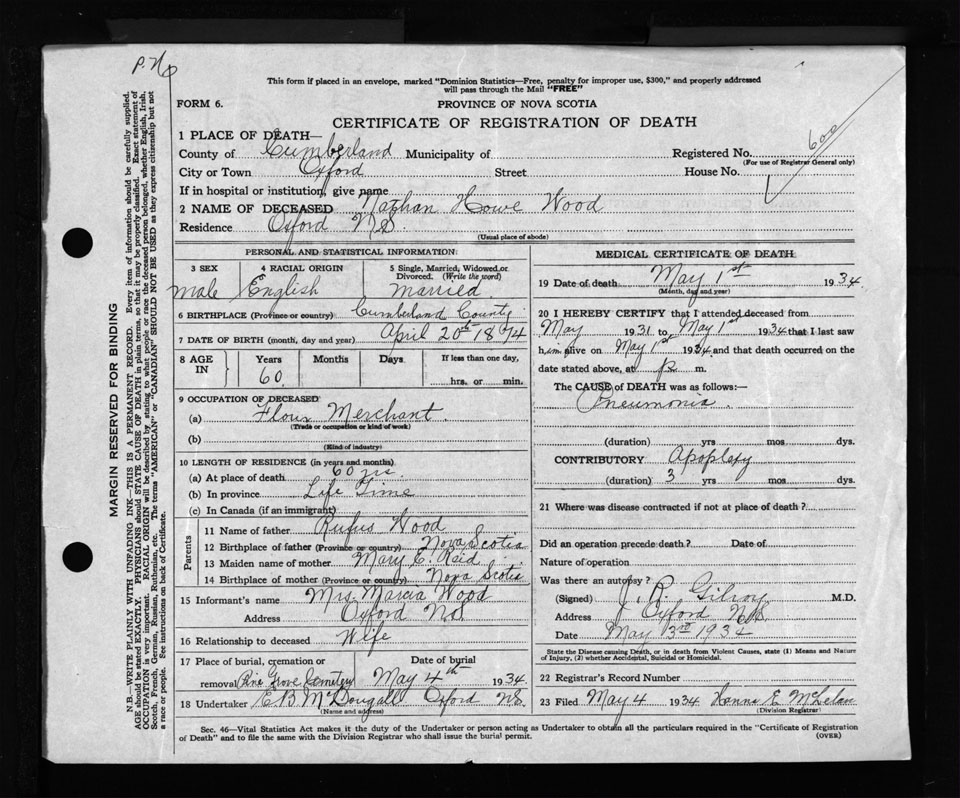 P.N.
This form if placed in an envelope, marked "Dominion Statistics—Free, penalty for improper use, $300," and properly addressed
will pass through the Mail "FREE"
FORM 6.
PROVINCE OF NOVA SCOTIA
CERTIFICATE OF REGISTRATION OF DEATH
600
1 PLACE OF DEATH—
County of Cumberland Municipality of Registered No.
(For use of Registrar General only)
City or Town Oxford Street House No.
If in hospital or institution, give name
2 NAME OF DECEASED Nathan Howe Wood
Residence Oxford N.S.
(Usual place of abode)
PERSONAL AND STATISTICAL INFORMATION
3 SEX 4 RACIAL ORIGIN 5 Single, Married, Widowed or Divorced. (Write the word)
male English married
6 BIRTHPLACE (Province or country) Cumberland County
7 DATE OF BIRTH (month, day and year) April 20th 1874
8 AGE IN Years Months Days If less than one day,
60 hrs. or min.
9 OCCUPATION OF DECEASED
(a) Flour Merchant
(Trade or occupation or kind of work)
(b)
(Kind of industry)
10 LENGTH OF RESIDENCE (in years and months)
(a) At place of death 60 yrs.
(b) In province Life Time
(c) In Canada (if an immigrant)
Parents
11 Name of father Rufus Wood
12 Birthplace of father (Province or country) Nova Scotia
13 Maiden name of mother Mary E. Reid
14 Birthplace of mother (Province or country) Nova Scotia
15 Informant's name Mrs. Marcia Wood
Address Oxford N.S.
16 Relationship to deceased Wife
17 Place of burial, cremation or Date of burial
removal Pine Grove Cemetery May 4th 1934
18 Undertaker E B McDougall Oxford NS
(Name and address)
MEDICAL CERTIFICATE OF DEATH
19 Date of death May 1st 1934
(Month, day and year)
20 I HEREBY CERTIFY that I attended deceased from
May 1931 to May 1st 1934 that I last saw
him alive on May 1st 1934 and that death occurred on the
date stated above, at 12 m.
The CAUSE of DEATH was as follows:—
Pneumonia
(duration) yrs mos dys.
CONTRIBUTORY Apoplexy
(duration) 3 yrs mos dys.
21 Where was disease contracted if not at place of death?
Did an operation precede death? Date of
Nature of operation
Was there an autopsy?
(Signed) J. R. Gilroy M.D.
Address Oxford N.S.
Date May 3rd 1934
State the Disease causing Death, or in death from Violent Causes, state (1) Means and Nature
of Injury, (2) whether Accidental, Suicidal or Homicidal.
22 Registrar's Record Number
23 Filed May 4 1934 Hanna E McLelan
(Division Registrar)
Sec. 46—Vital Statistics Act makes it the duty of the Undertaker or person acting as Undertaker to obtain all the particulars required in the "Certificate of Registration
of Death" and to file the same with the Division Registrar who shall issue the burial permit. (OVER)
MARGIN RESERVED FOR BINDING
N.B.—WRITE PLAINLY WITH UNFADING INK—THIS IS A PERMANENT RECORD. Every item of information should be carefully supplied.
AGE should be stated EXACTLY. PHYSICIANS should STATE CAUSE OF DEATH in plain terms, so that it may be properly classified. Exact statement of
OCCUPATION is very important. RACIAL ORIGIN will be described by stating to what people or race the deceased person belonged, whether English, Irish,
Scotch, French, German, Russian, Ruthenian, etc. The terms "AMERICAN" or "CANADIAN" SHOULD NOT BE USED as they express citizenship but not
a race or people. See instructions on back of Certificate.